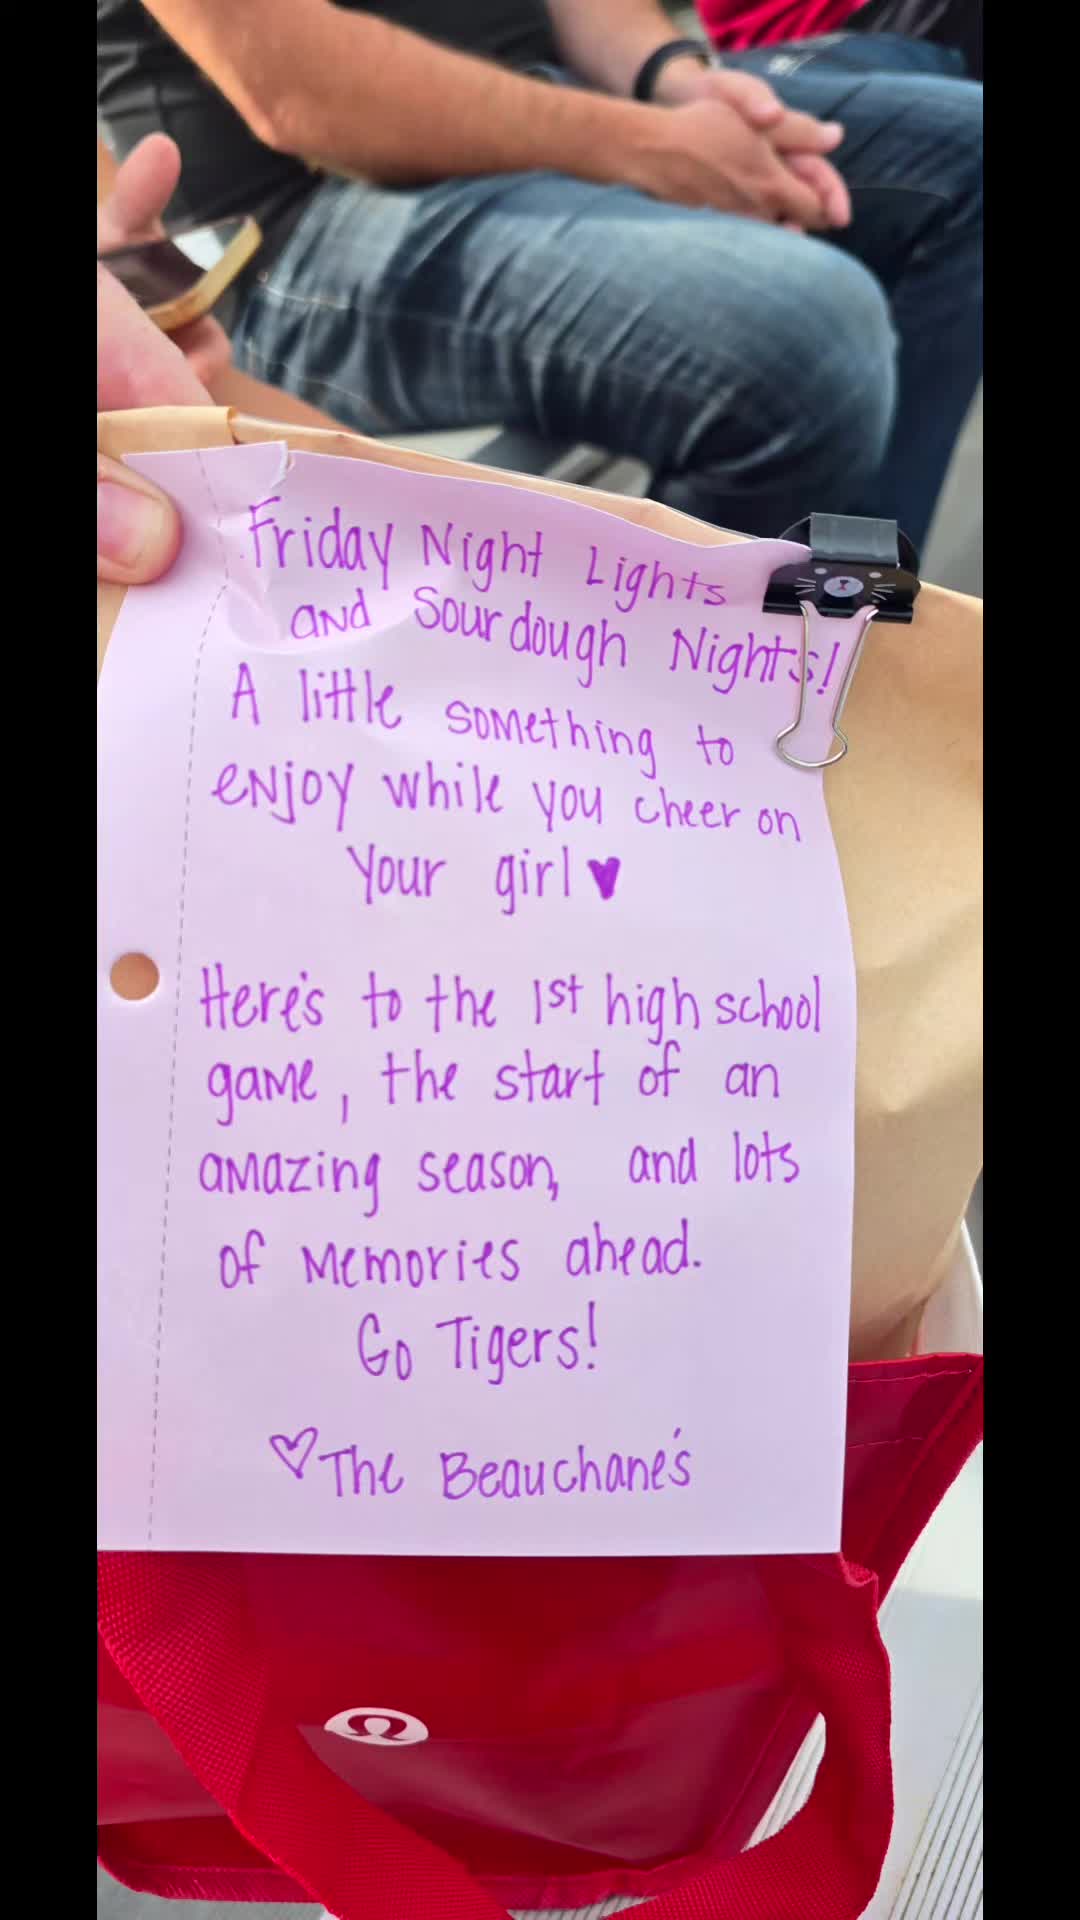 Friday Night Lights
and Sourdough Nights!
A little something to
enjoy while you cheer on
your girl ♥
Here's to the 1st high school
game, the start of an
amazing season, and lots
of memories ahead.
Go Tigers!
♡The Beauchane's